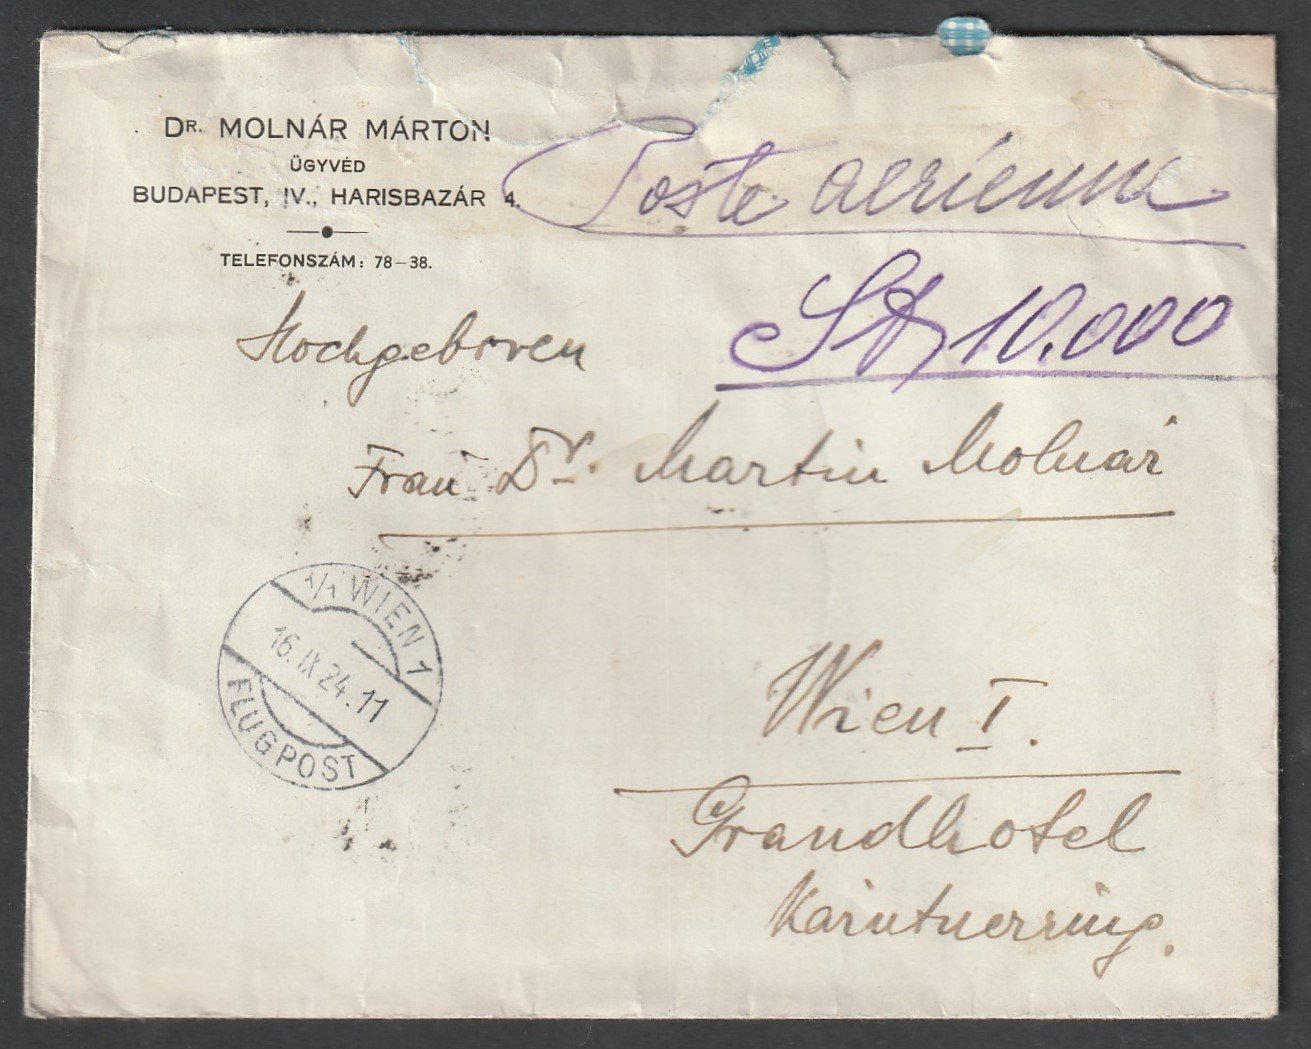 DR. MOLNÁR MÁRTON
ÜGYVÉD
BUDAPEST, IV., HARISBAZÁR 4.
TELEFONSZÁM: 78–38.
Poste aerienne
10.000
Hochgeboren
Frau Dr. Martin Molnár
Wien I.
Grandhotel
Kärntnerring.
1/1 WIEN 1
16.IX.24.11
FLUGPOST